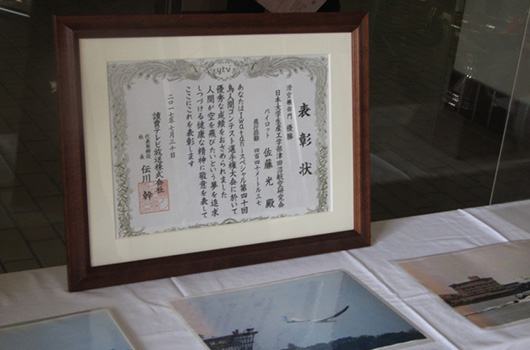 ytv
表彰状
滑空機部門 優勝
日本大学生産工学部津田沼航空研究会
パイロット 佐藤 光 殿
飛行距離 四百四十メートル三七
あなたはIwataniスペシャル第四十回
鳥人間コンテスト選手権大会に於いて
優秀な成績をおさめられました
人間が空を飛びたいという夢を追求
しつづける健康な精神に敬意を表して
ここにこれを表彰します
二〇一七年七月三十日
讀賣テレビ放送株式会社
代表取締役
社長